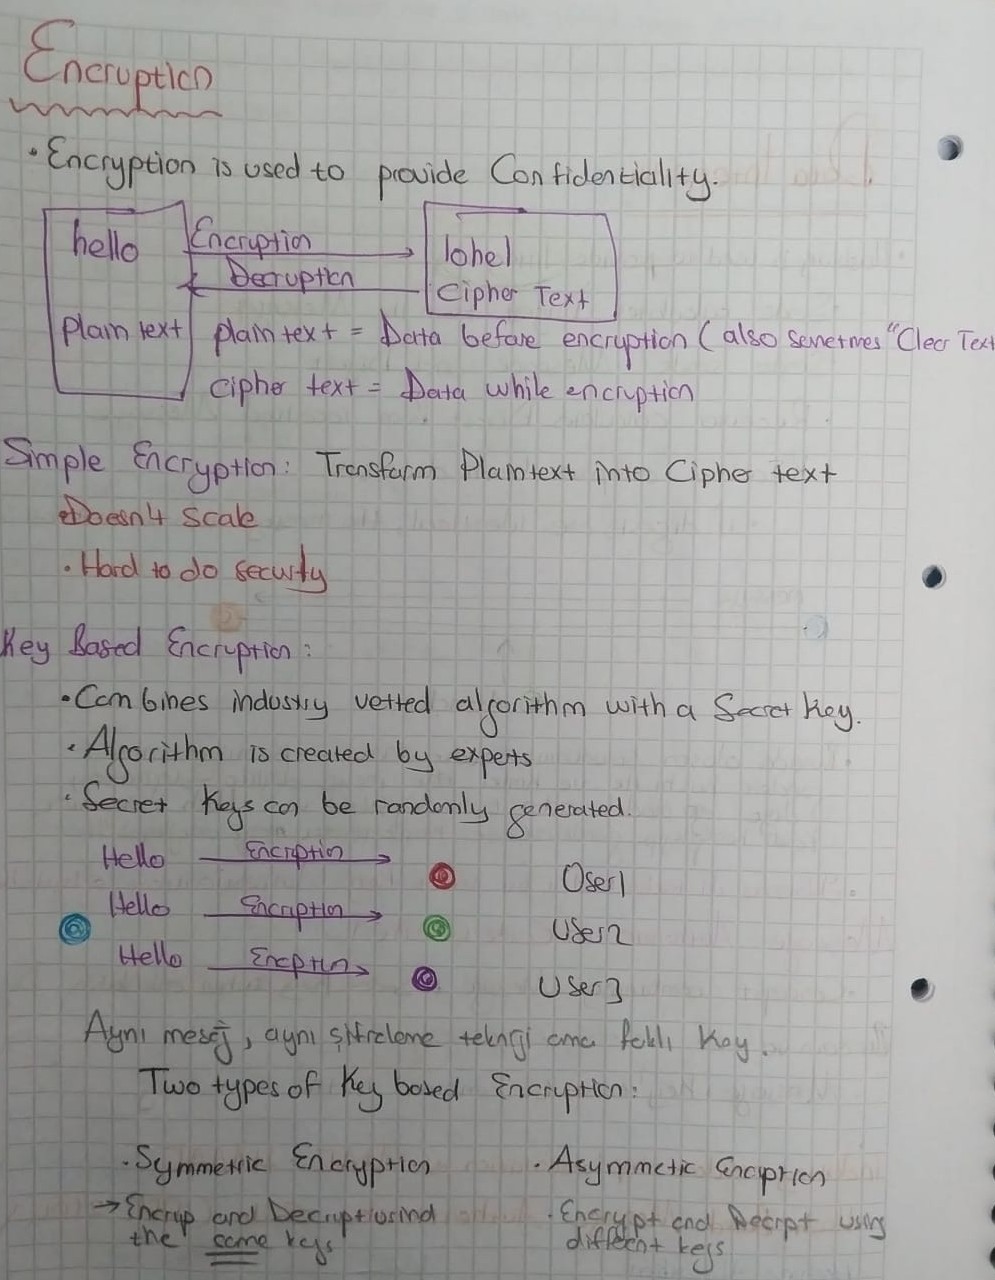 Encruption
• Encryption is used to provide Confidentiality.
hello Encruption lohel
Decruption Cipher Text
Plain text plain text = Data before encruption (also sometimes "Clear Text
Cipher text = Data while encruption
Simple Encryption: Transform Plaintext into Cipher text
• Doesn't Scale
• Hard to do security
Key Based Encruption:
• Combines industry vetted algorithm with a Secret Key.
• Algorithm is created by experts
• Secret Keys can be randomly generated.
Hello Encrption User1
Hello Encruption User2
Hello Encption User3
Aynı mesaj, aynı şifreleme tekniği ama farklı Key.
Two types of Key based Encruption:
• Symmetric Encryption • Asymmetic Encuption
→ Encrup and Decrupt using • Encrypt and Decrpt using
the same keys different keys